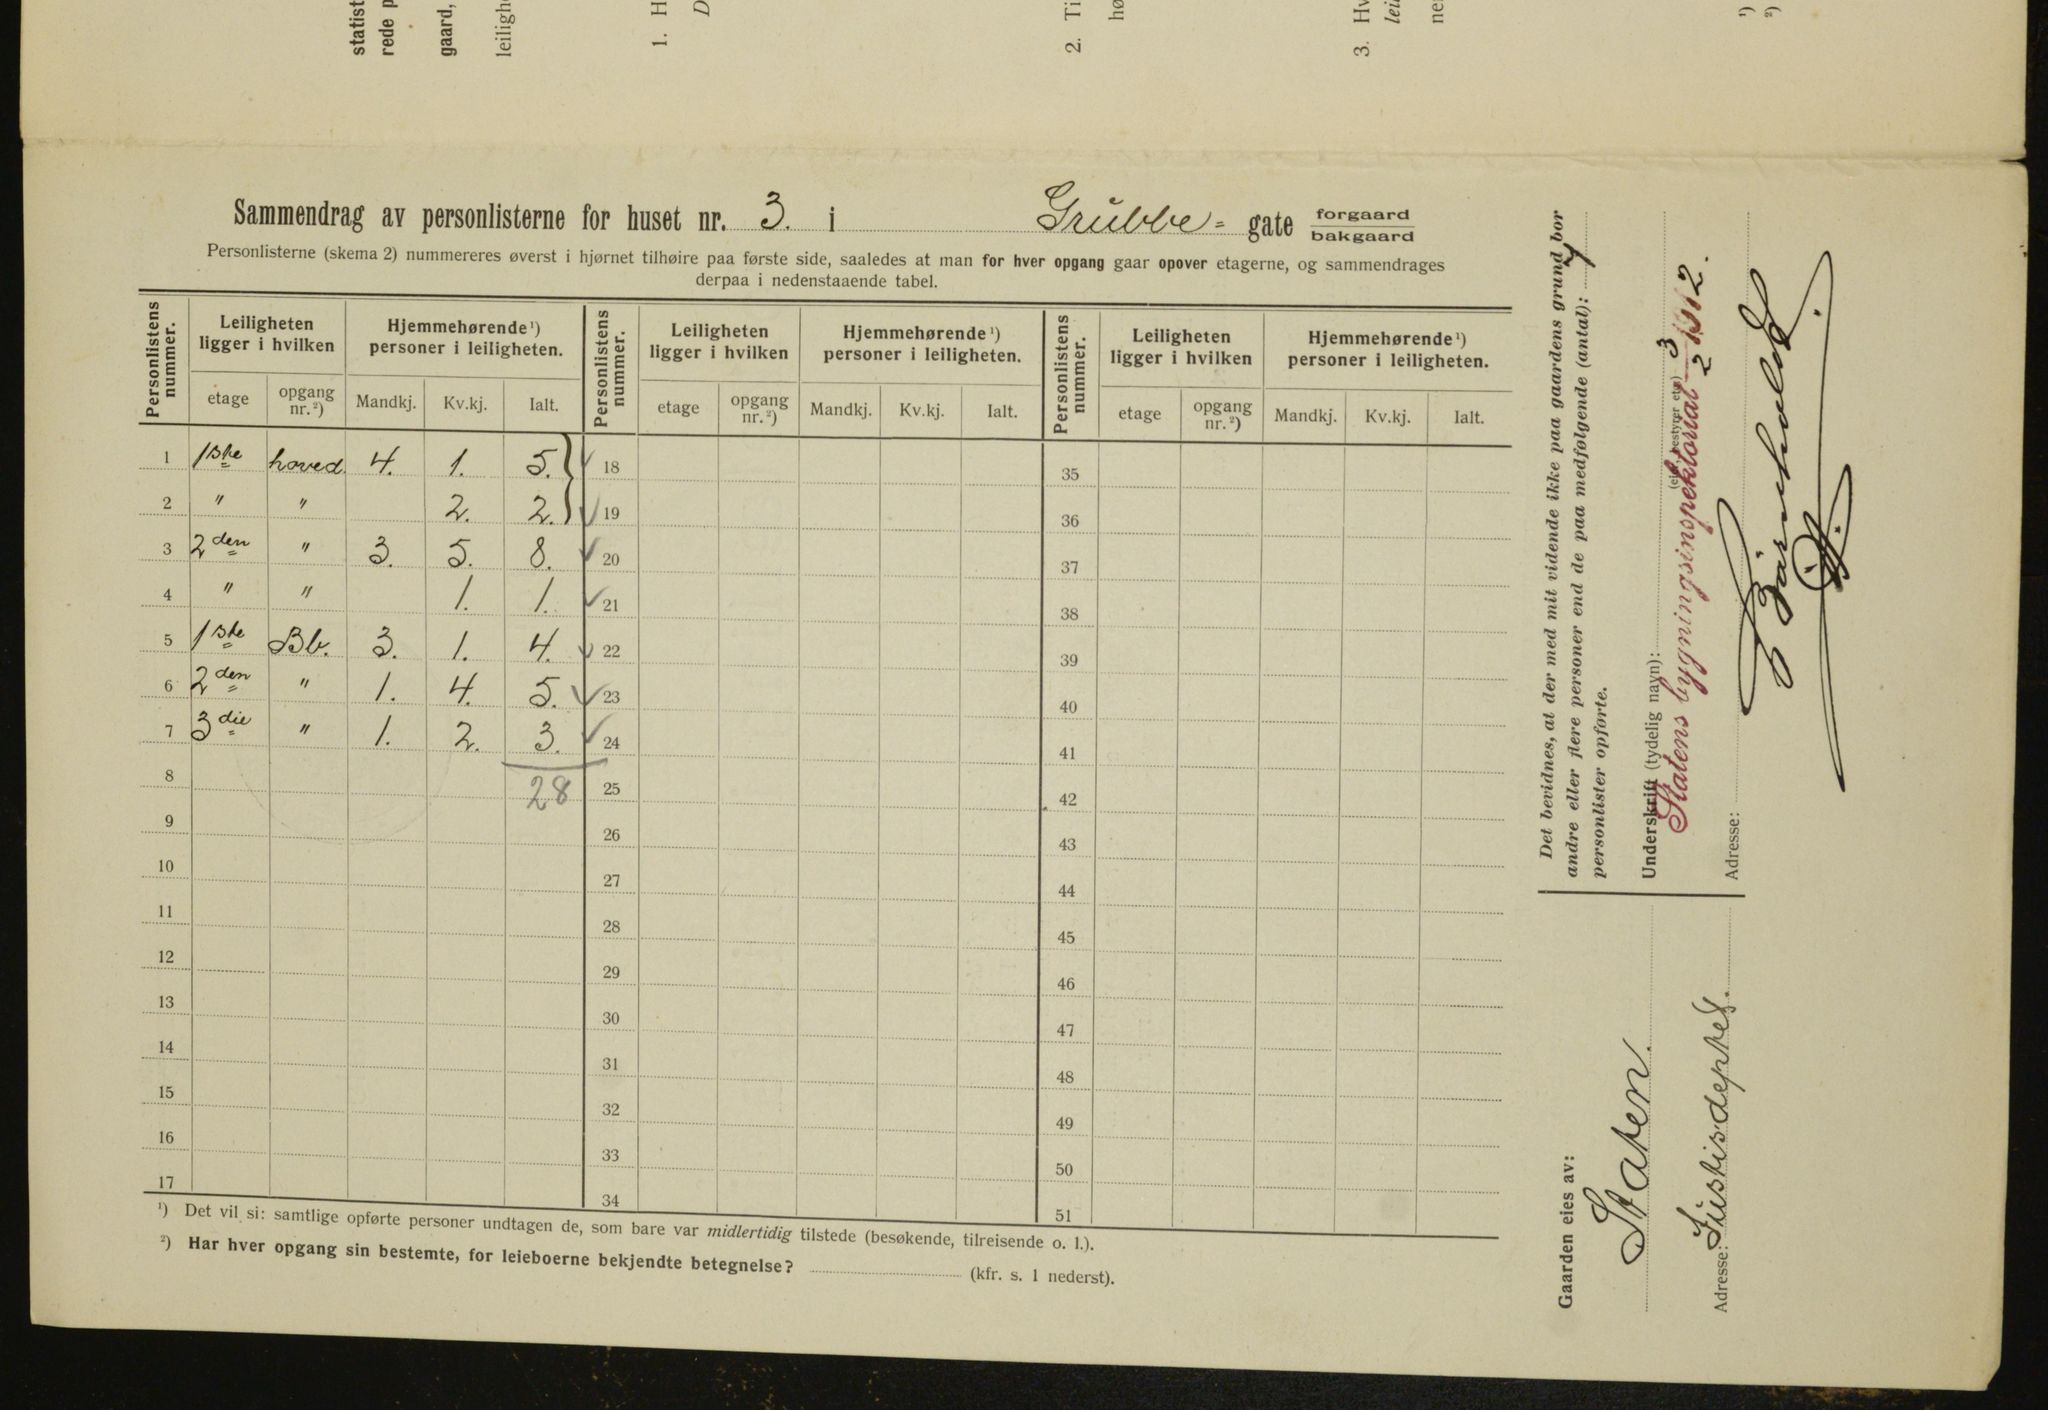 statist
rede p
gaard,
leiligh
1. H
D
2. Ti
hø
3. Hv
lei
ne
¹)
²)
Sammendrag av personlisterne for huset nr. 3. i Grubbe- gate forgaard
bakgaard
Personlisterne (skema 2) nummereres øverst i hjørnet tilhøire paa første side, saaledes at man for hver opgang gaar opover etagerne, og sammendrages
derpaa i nedenstaaende tabel.
Personlistens nummer. Leiligheten ligger i hvilken Hjemmehørende¹) personer i leiligheten. Personlistens nummer. Leiligheten ligger i hvilken Hjemmehørende¹) personer i leiligheten. Personlistens nummer. Leiligheten ligger i hvilken Hjemmehørende¹) personer i leiligheten.
etage opgang nr.²) Mandkj. Kv.kj. Ialt. etage opgang nr.²) Mandkj. Kv.kj. Ialt. etage opgang nr.²) Mandkj. Kv.kj. Ialt.
1 1ste hoved. 4. 1. 5. 18 35
2 " " 2. 2. 19 36
3 2den " 3. 5. 8. 20 37
4 " " 1. 1. 21 38
5 1ste Bb. 3. 1. 4. 22 39
6 2den " 1. 4. 5. 23 40
7 3die " 1. 2. 3. 24 41
8 28 25 42
9 26 43
10 27 44
11 28 45
12 29 46
13 30 47
14 31 48
15 32 49
16 33 50
17 34 51
¹) Det vil si: samtlige opførte personer undtagen de, som bare var midlertidig tilstede (besøkende, tilreisende o. l.).
²) Har hver opgang sin bestemte, for leieboerne bekjendte betegnelse? (kfr. s. 1 nederst).
Det bevidnes, at der med mit vidende ikke paa gaardens grund bor
andre eller flere personer end de paa medfølgende (antal): 7
personlister opførte.
Underskrift (tydelig navn): (eier, bestyrer etc.)
Statens bygningsinspektorat 3/2 1912.
Adresse:
Gaarden eies av:
Staten.
Adresse: Justisdeptet.